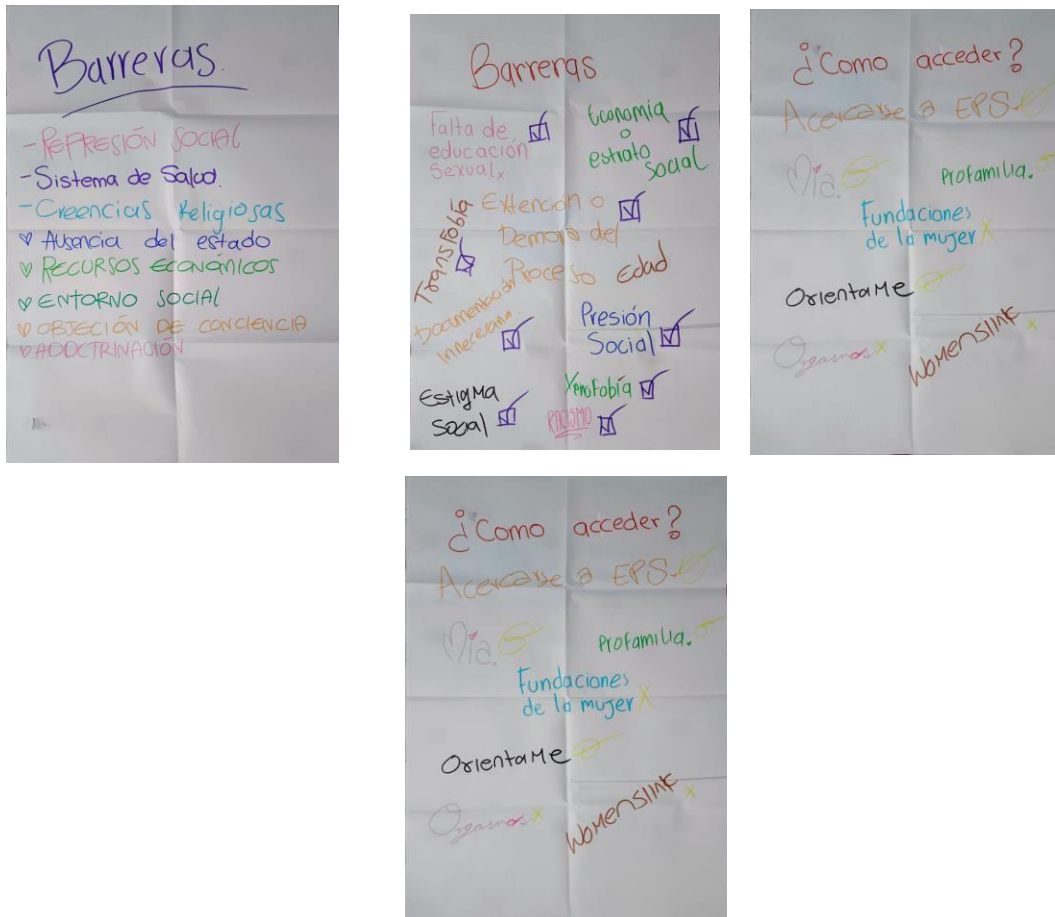 Barreras.
- REPRESIÓN SOCIAL
- Sistema de Salud.
- Creencias Religiosas
♡ Ausencia del estado
♡ RECURSOS ECONÓMICOS
♡ ENTORNO SOCIAL
♡ OBJECIÓN DE CONCIENCIA
♡ ADOCTRINACIÓN
Barreras
Falta de
educación
Sexual
Economía
o
estrato
Social
Extención o
Demora del
Proceso
Transfobía
Edad
Documentación
innecesaria.
Presión
Social
Estigma
Social
Xenofobía
RACISMO
¿Como acceder?
Acercarse a EPS.
Mía.
Profamilia.
Fundaciones
de la mujer X
OrientaMe
Orgasmos X
Womenslink x
¿Como acceder?
Acercarse a EPS.
Mía.
Profamilia.
Fundaciones
de la mujer X
OrientaMe
Orgasmos X
Womenslink x